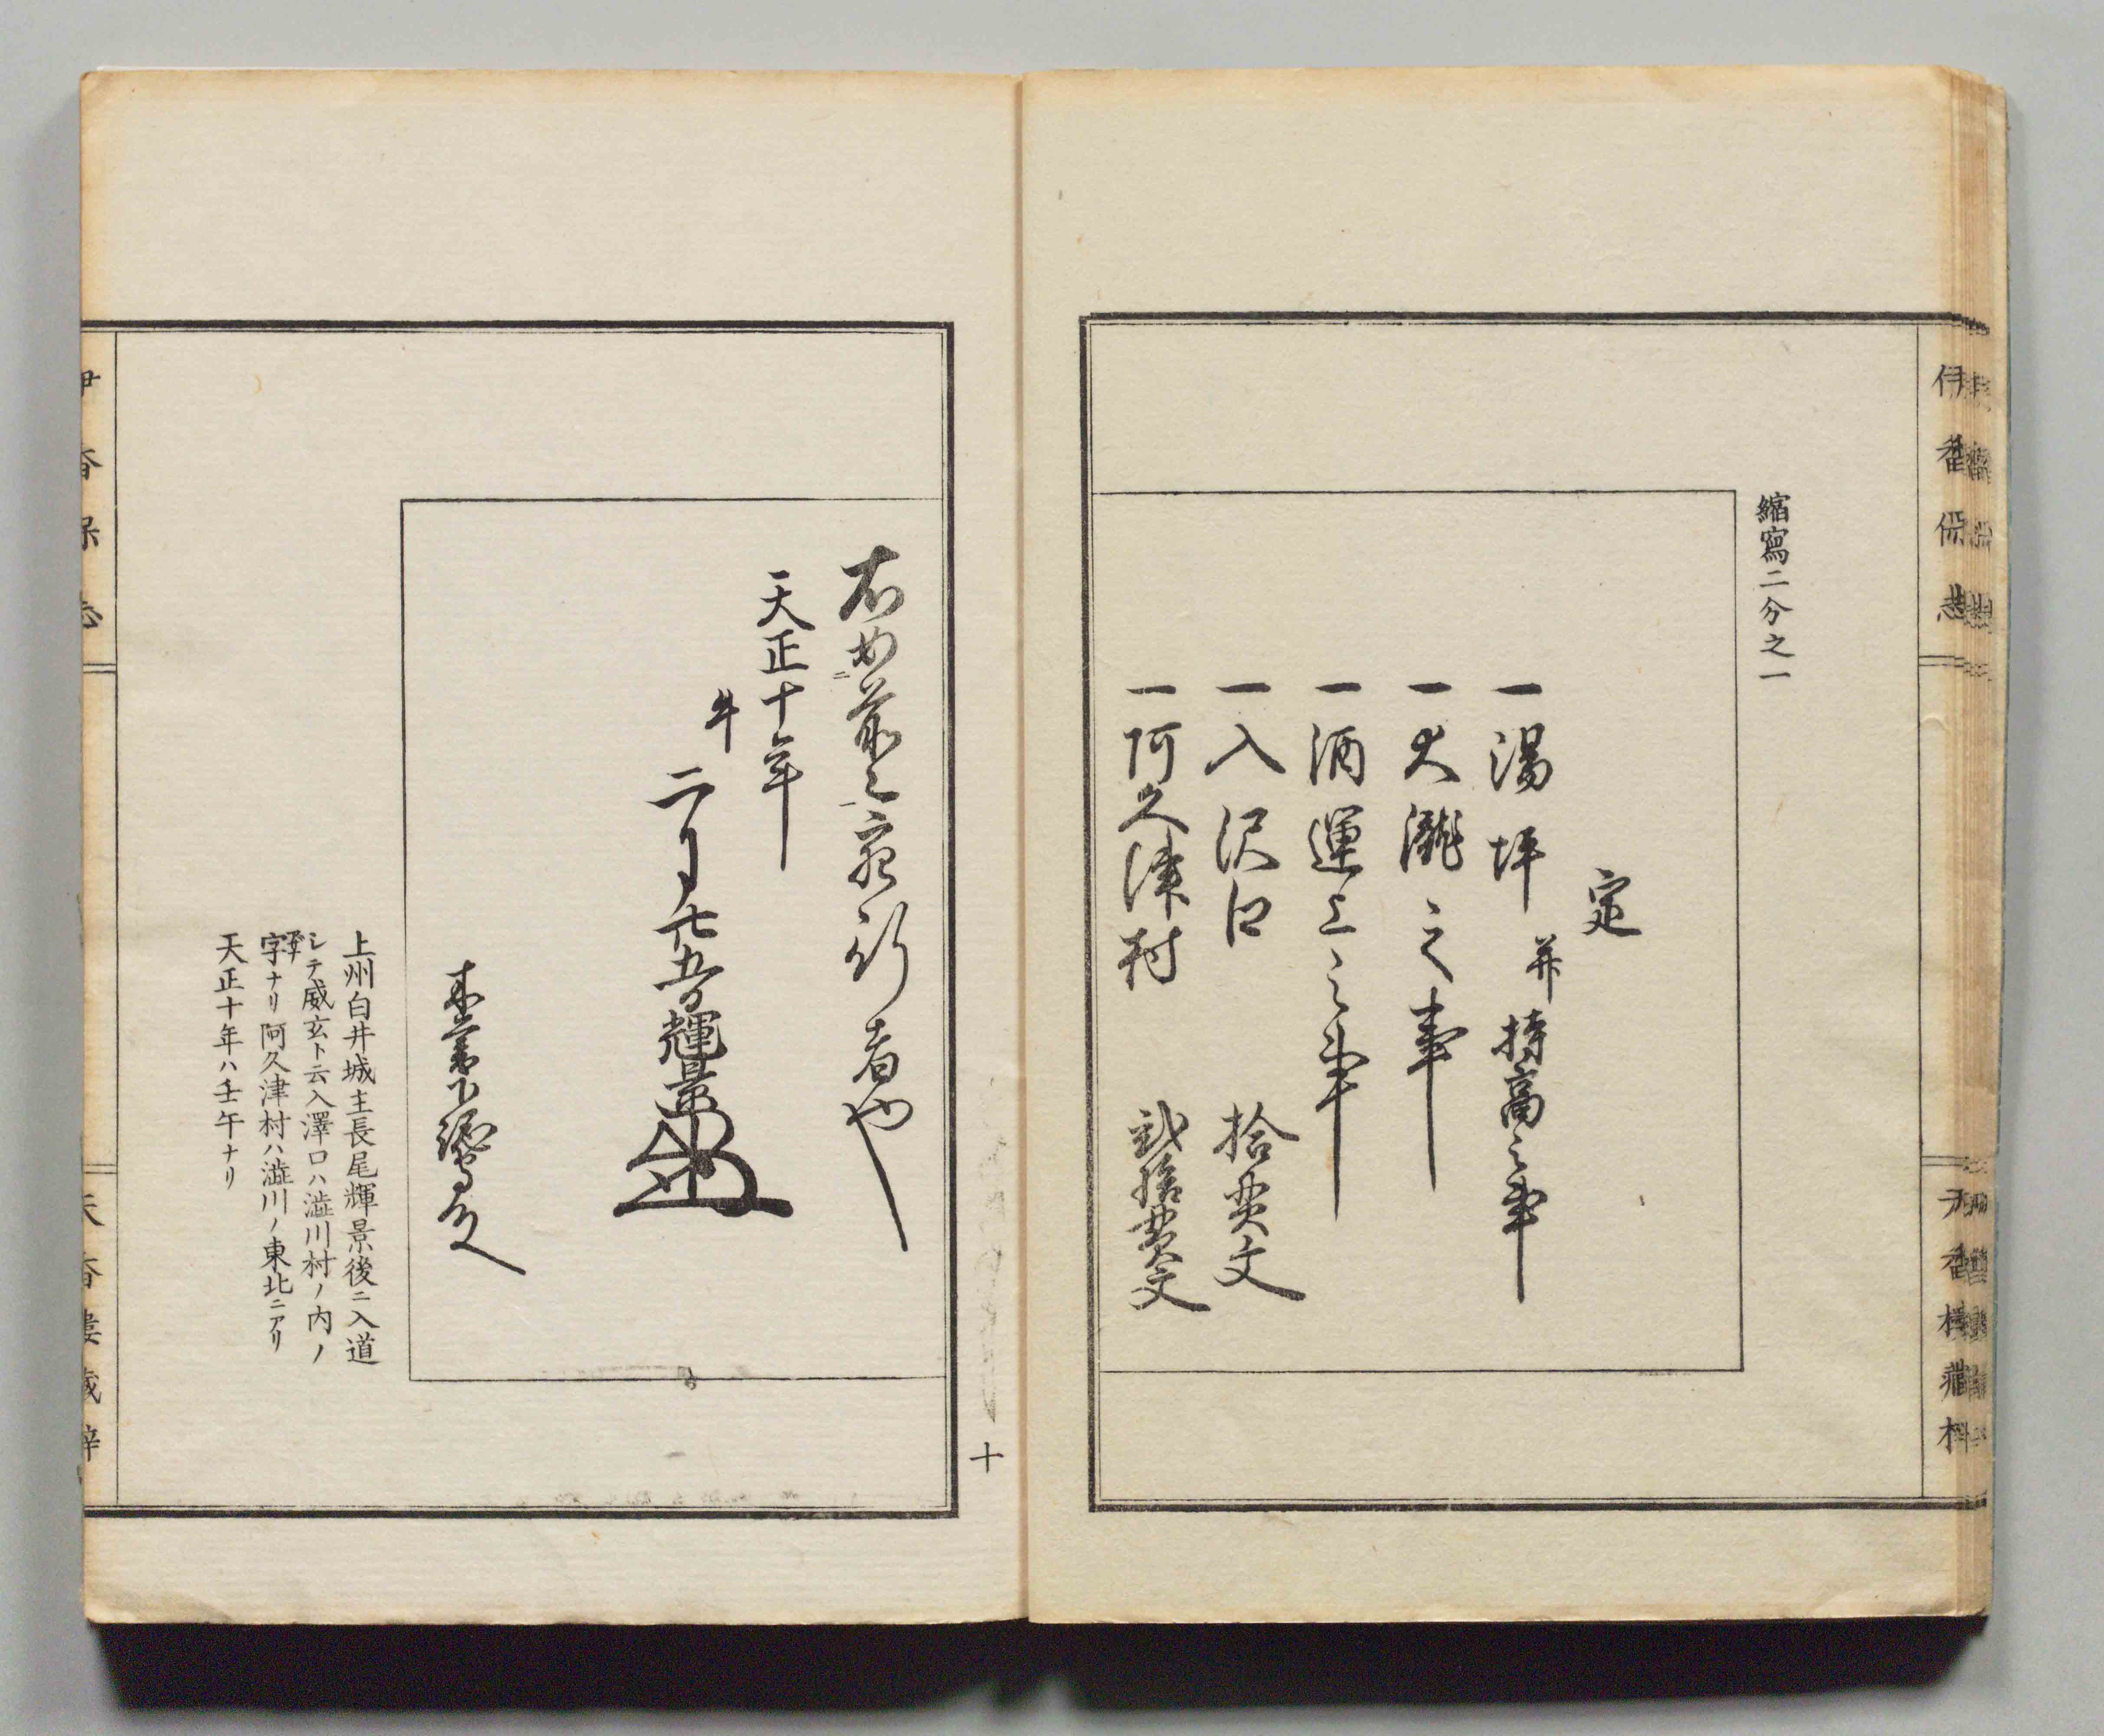 伊香保志
縮寫二分之一
定
一湯坪并持高之事
一大瀧之事
一酒運上之事
一入沢口 拾貫文
一阿久津村 貳拾貫文
天香楼蔵梓
十
右如前之 行者也
天正十年
午
二月廿五日輝景
木暮下総守殿
上州白井城主長尾輝景後ニ入道
シテ威玄ト云入澤口ハ澁川村ノ内ノ
字ナリ阿久津村ハ澁川ノ東北ニアリ
天正十年ハ壬午ナリ
伊香保志
天香楼蔵梓